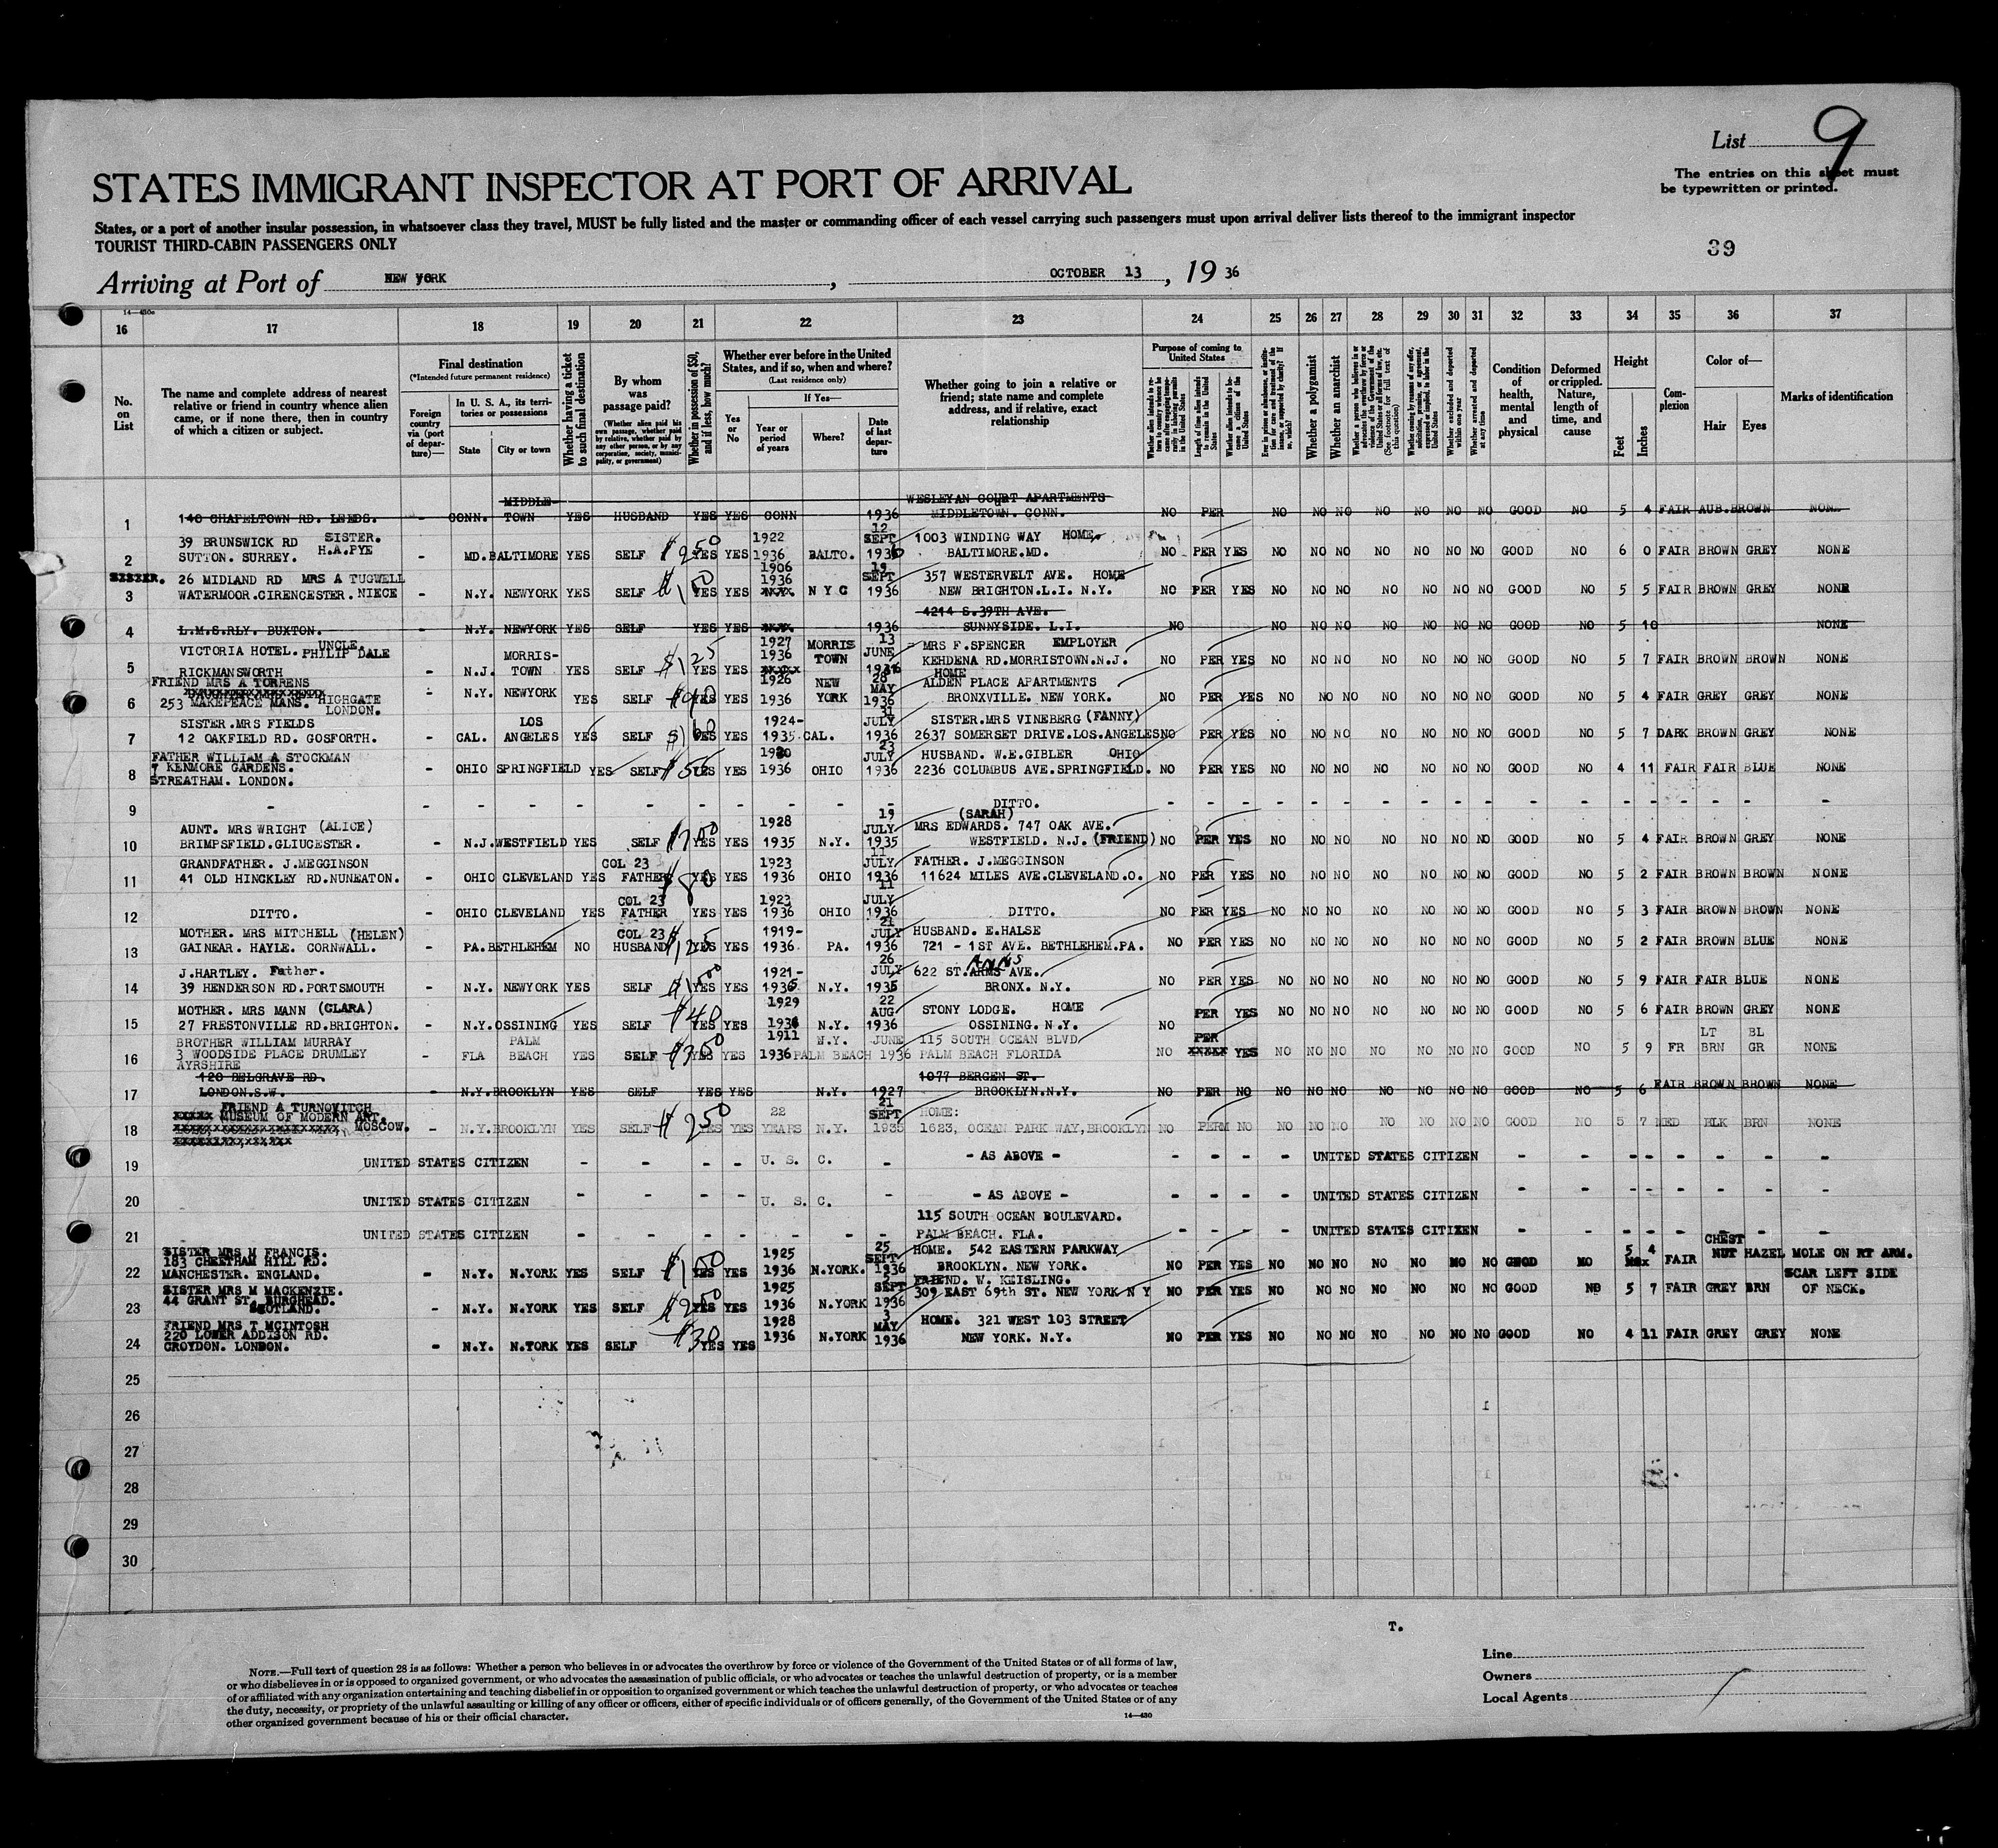 List 9
The entries on this sheet must
be typewritten or printed.
STATES IMMIGRANT INSPECTOR AT PORT OF ARRIVAL
States, or a port of another insular possession, in whatsoever class they travel, MUST be fully listed and the master or commanding officer of each vessel carrying such passengers must upon arrival deliver lists thereof to the immigrant inspector
TOURIST THIRD-CABIN PASSENGERS ONLY
39
Arriving at Port of NEW YORK, OCTOBER 13, 19 36
16 17 18 19 20 21 22 23 24 25 26 27 28 29 30 31 32 33 34 35 36 37
No. on List
The name and complete address of nearest relative or friend in country whence alien came, or if none there, then in country of which a citizen or subject.
Final destination
(*Intended future permanent residence)
Foreign country via (port of departure)—
In U. S. A., its territories or possessions
State
City or town
Whether having a ticket to such final destination
By whom was passage paid?
(Whether alien paid his own passage, whether paid by relative, whether paid by any other person, or by any corporation, society, municipality, or government)
Whether in possession of $50, and if less, how much?
Whether ever before in the United States, and if so, when and where?
(Last residence only)
Yes or No
If Yes—
Year or period of years
Where?
Date of last departure
Whether going to join a relative or friend; state name and complete address, and if relative, exact relationship
Purpose of coming to United States
Whether a polygamist
Whether an anarchist
Condition of health, mental and physical
Deformed or crippled. Nature, length of time, and cause
Height
Feet
Inches
Complexion
Color of—
Hair
Eyes
Marks of identification
MIDDLE- WESLEYAN COURT APARTMENTS
1 140 CHAPELTOWN RD. LEEDS. - CONN. TOWN YES HUSBAND YES YES CONN 1936 MIDDLETOWN. CONN. NO PER NO NO NO NO NO NO NO GOOD NO 5 4 FAIR AUB. BROWN NONE
39 BRUNSWICK RD SISTER. 1922 12 SEPT 1003 WINDING WAY HOME
2 SUTTON. SURREY. H.A.PYE - MD. BALTIMORE YES SELF $250 YES YES 1936 BALTO. 1936 BALTIMORE.MD. NO PER YES NO NO NO NO NO NO NO GOOD NO 6 0 FAIR BROWN GREY NONE
26 MIDLAND RD MRS A TUGWELL 1906 1936 19 SEPT 357 WESTERVELT AVE. HOME
3 WATERMOOR.CIRENCESTER. NIECE - N.Y. NEWYORK YES SELF YES YES N Y C 1936 NEW BRIGHTON.L.I. N.Y. NO PER YES NO NO NO NO NO NO NO GOOD NO 5 5 FAIR BROWN GREY NONE
4214 S.39TH AVE.
4 L.M.S.RLY. BUXTON. - N.Y. NEWYORK YES SELF YES YES 1936 SUNNYSIDE. L.I. NO NO NO NO NO NO NO NO GOOD NO 5 10 NONE
VICTORIA HOTEL. UNCLE. PHILIP DALE MORRIS- 1927 1936 MORRIS TOWN 13 JUNE MRS F.SPENCER EMPLOYER
5 RICKMANSWORTH - N.J. TOWN YES SELF $125 YES YES 1936 KEHDENA RD.MORRISTOWN.N.J. NO PER YES NO NO NO NO NO NO NO GOOD NO 5 7 FAIR BROWN BROWN NONE
FRIEND MRS A TORRENS 1926 NEW 28 MAY HOME ALDEN PLACE APARTMENTS
6 253 MAKEPEACE MANS. HIGHGATE LONDON. - N.Y. NEWYORK YES SELF YES YES 1936 YORK 1936 BRONXVILLE. NEW YORK. NO PER YES NO NO NO NO NO NO NO GOOD NO 5 4 FAIR GREY GREY NONE
SISTER.MRS FIELDS LOS 1924- 31 JULY SISTER.MRS VINEBERG (FANNY)
7 12 OAKFIELD RD. GOSFORTH. - CAL. ANGELES YES SELF YES YES 1935 CAL. 1936 2637 SOMERSET DRIVE.LOS.ANGELES NO PER YES NO NO NO NO NO NO NO GOOD NO 5 7 DARK BROWN GREY NONE
FATHER WILLIAM A STOCKMAN 1920 23 JULY HUSBAND. W.E.GIBLER OHIO
8 7 KENMORE GARDENS. - OHIO SPRINGFIELD YES SELF YES YES 1936 OHIO 1936 2236 COLUMBUS AVE.SPRINGFIELD. NO PER YES NO NO NO NO NO NO NO GOOD NO 4 11 FAIR FAIR BLUE NONE
STREATHAM. LONDON.
9 - - - - - - - - - - - DITTO. - - - - - - - - - - - - - - - - -
AUNT. MRS WRIGHT (ALICE) 1928 19 JULY MRS EDWARDS. 747 OAK AVE. (SARAH)
10 BRIMPSFIELD.GLIUCESTER. - N.J. WESTFIELD YES SELF YES YES 1935 N.Y. 1935 WESTFIELD. N.J. (FRIEND) NO PER YES NO NO NO NO NO NO NO GOOD NO 5 4 FAIR BROWN GREY NONE
GRANDFATHER. J.MEGGINSON COL 23 1923 11 JULY FATHER. J.MEGGINSON
11 41 OLD HINCKLEY RD.NUNEATON. - OHIO CLEVELAND YES FATHER $80 YES YES 1936 OHIO 1936 11624 MILES AVE.CLEVELAND.O. NO PER YES NO NO NO NO NO NO NO GOOD NO 5 2 FAIR BROWN BROWN NONE
COL 23 1923 11 JULY
12 DITTO. - OHIO CLEVELAND YES FATHER YES YES 1936 OHIO 1936 DITTO. NO PER YES NO NO NO NO NO NO NO GOOD NO 5 3 FAIR BROWN BROWN NONE
MOTHER. MRS MITCHELL (HELEN) COL 23 1919- 21 JULY HUSBAND. E.HALSE
13 GAINEAR. HAYLE. CORNWALL. - PA. BETHLEHEM NO HUSBAND $125 YES YES 1936 PA. 1936 721 - 1ST AVE. BETHLEHEM.PA. NO PER YES NO NO NO NO NO NO NO GOOD NO 5 2 FAIR BROWN BLUE NONE
J.HARTLEY. Father. 1921- 26 JULY 622 ST.ANNS AVE.
14 39 HENDERSON RD.PORTSMOUTH - N.Y. NEWYORK YES SELF YES YES 1935 N.Y. 1935 BRONX. N.Y. NO PER YES NO NO NO NO NO NO NO GOOD NO 5 9 FAIR FAIR BLUE NONE
MOTHER. MRS MANN (CLARA) 1929 22 AUG STONY LODGE. HOME
15 27 PRESTONVILLE RD.BRIGHTON. - N.Y. OSSINING YES SELF $40 YES YES 1936 N.Y. 1936 OSSINING. N.Y. NO PER YES NO NO NO NO NO NO NO GOOD NO 5 6 FAIR BROWN GREY NONE
BROTHER WILLIAM MURRAY PALM 1911 N.Y. JUNE 115 SOUTH OCEAN BLVD PER LT BL
16 3 WOODSIDE PLACE DRUMLEY - FLA BEACH YES SELF YES YES 1936 PALM BEACH 1936 PALM BEACH FLORIDA NO YES NO NO NO NO NO NO NO GOOD NO 5 9 FR BRN GR NONE
AYRSHIRE
120 BELGRAVE RD. 1077 BERGEN ST.
17 LONDON.S.W. - N.Y. BROOKLYN YES SELF YES YES N.Y. 1927 BROOKLYN.N.Y. NO PER NO NO NO NO NO NO NO NO GOOD NO 5 6 FAIR BROWN BROWN NONE
FRIEND A TURNOVITCH 22 21 SEPT HOME:
18 MUSEUM OF MODERN ART. MOSCOW. - N.Y. BROOKLYN YES SELF $250 YES YES YEARS N.Y. 1935 1623, OCEAN PARK WAY, BROOKLYN NO PERM NO NO NO NO NO NO NO NO GOOD NO 5 7 MED BLK BRN NONE
19 UNITED STATES CITIZEN - - - - U. S. C. - - AS ABOVE - - - - - UNITED STATES CITIZEN - - - - - - - -
20 UNITED STATES CITIZEN - - - - U. S. C. - - AS ABOVE - - - - - UNITED STATES CITIZEN - - - - - - - -
115 SOUTH OCEAN BOULEVARD.
21 UNITED STATES CITIZEN - - - - - - - PALM BEACH. FLA. - - - UNITED STATES CITIZEN - - - - - - - -
SISTER MRS M FRANCIS. 1925 25 SEPT HOME. 542 EASTERN PARKWAY 5 4 CHEST
183 CHEETHAM HILL RD. NUT HAZEL MOLE ON RT ARM.
22 MANCHESTER. ENGLAND. - N.Y. N.YORK YES SELF YES YES 1936 N.YORK. 1936 BROOKLYN. NEW YORK. NO PER YES NO NO NO NO NO NO NO GOOD NO FAIR
SISTER MRS M MACKENZIE. 1925 SEPT FRIEND. W. KEISLING. SCAR LEFT SIDE
44 GRANT ST. BURGHEAD.
23 SCOTLAND. - N.Y. N.YORK YES SELF $250 YES YES 1936 N.YORK 1936 309 EAST 69th ST. NEW YORK N Y NO PER YES NO NO NO NO NO NO NO GOOD NO 5 7 FAIR GREY BRN OF NECK.
FRIEND MRS T MCINTOSH 1928 3 MAY HOME. 321 WEST 103 STREET
220 LOWER ADDISON RD.
24 CROYDON. LONDON. - N.Y. N.TORK YES SELF $30 YES YES 1936 N.YORK 1936 NEW YORK. N.Y. NO PER YES NO NO NO NO NO NO NO GOOD NO 4 11 FAIR GREY GREY NONE
25
26
27
28
29
30
T.
NOTE.—Full text of question 28 is as follows: Whether a person who believes in or advocates the overthrow by force or violence of the Government of the United States or of all forms of law,
or who disbelieves in or is opposed to organized government, or who advocates the assassination of public officials, or who advocates or teaches the unlawful destruction of property, or is a member
of or affiliated with any organization entertaining and teaching disbelief in or opposition to organized government or which teaches the unlawful destruction of property, or who advocates or teaches
the duty, necessity, or propriety of the unlawful assaulting or killing of any officer or officers, either of specific individuals or of officers generally, of the Government of the United States or of any
other organized government because of his or their official character.
14—430
Line
Owners
Local Agents